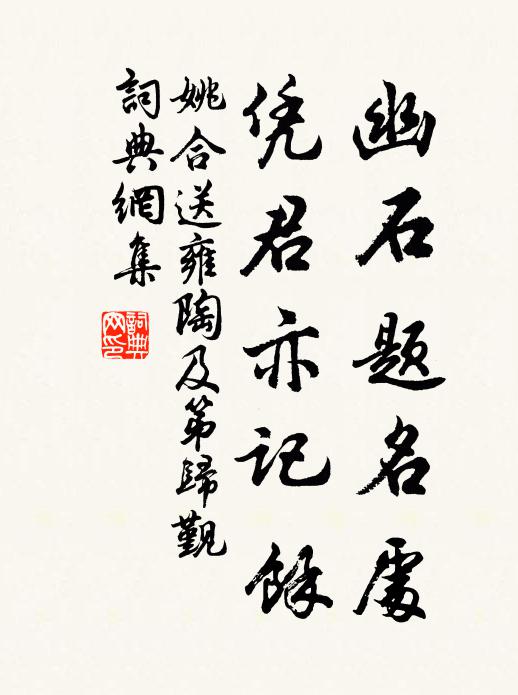 幽石題名處
凭君亦記餘
姚合送雍陶及第歸觐
詞典網集
詞典网印